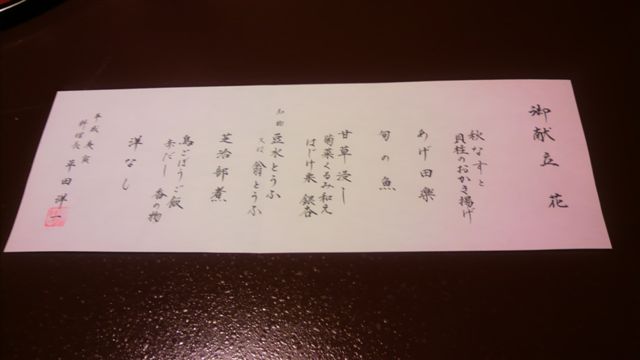 御献立 花
秋なすと
貝柱のおかき揚げ
あげ田楽
旬の魚
甘草浸し
菊菜くるみ和え
はじけ米 銀杏
名物 豆水とうふ
又は 飛とうふ
芝治部煮
鳥ごぼうご飯
赤だし 香の物
洋なし
平成庚寅
料理長 平田洋一